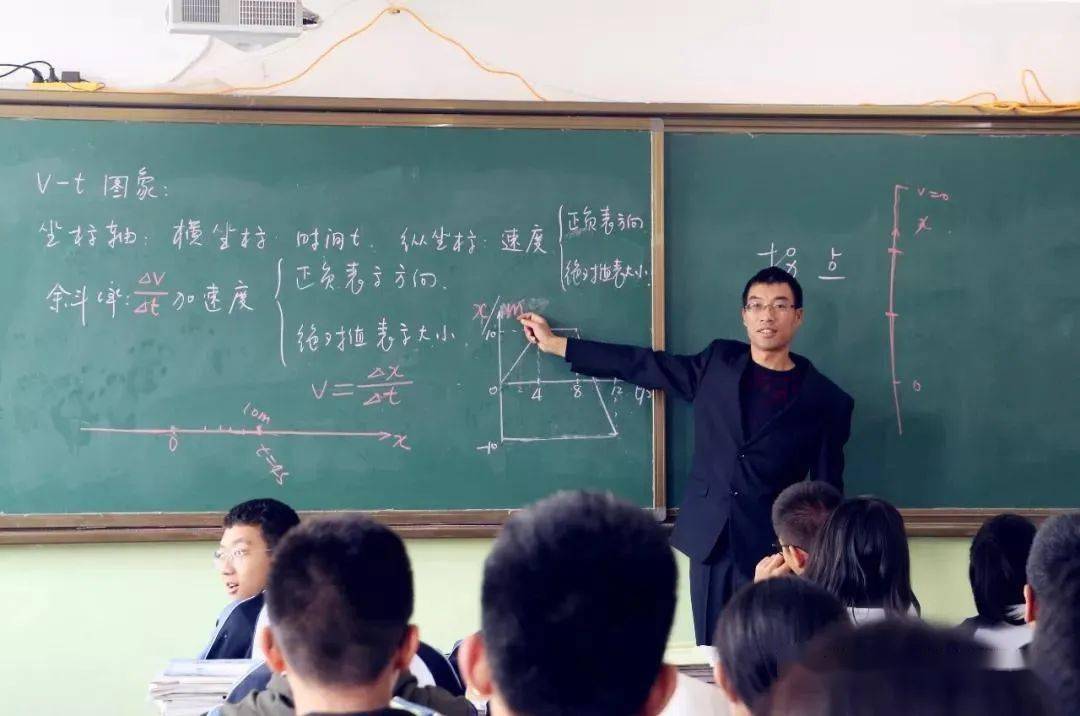 V-t 图象:
坐标轴: 横坐标: 时间t. 纵坐标: 速度 { 正负表方向
绝对值表大小.
余斗率: ΔV/Δt 加速度 { 正负表示方向.
绝对值表示大小.
V = Δx/Δt
x/m
10
0 2 4 8 12 t/s
-10
10m
0 x
V=0
x
0